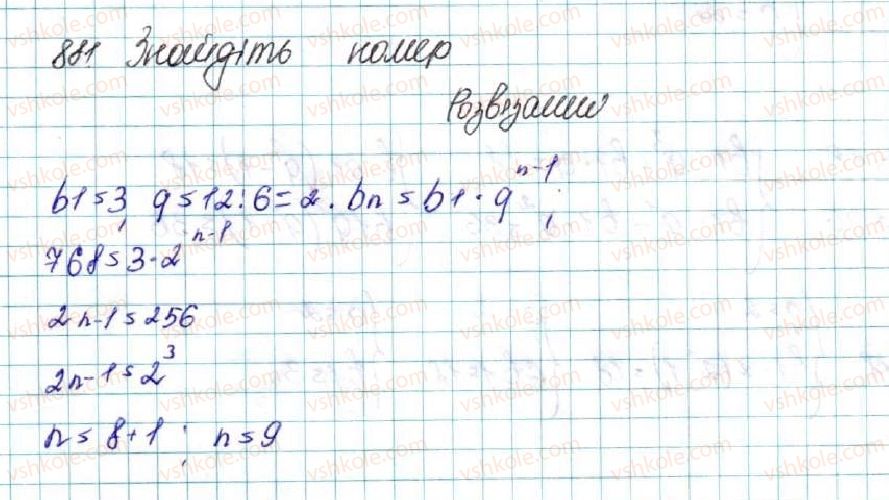 881 Знайдіть номер
Розвязання
b1=3, q=12:6=2. bn=b1·q^n-1;
768=3·2^n-1
2n-1=256
2n-1=2^3
n=8+1; n=9